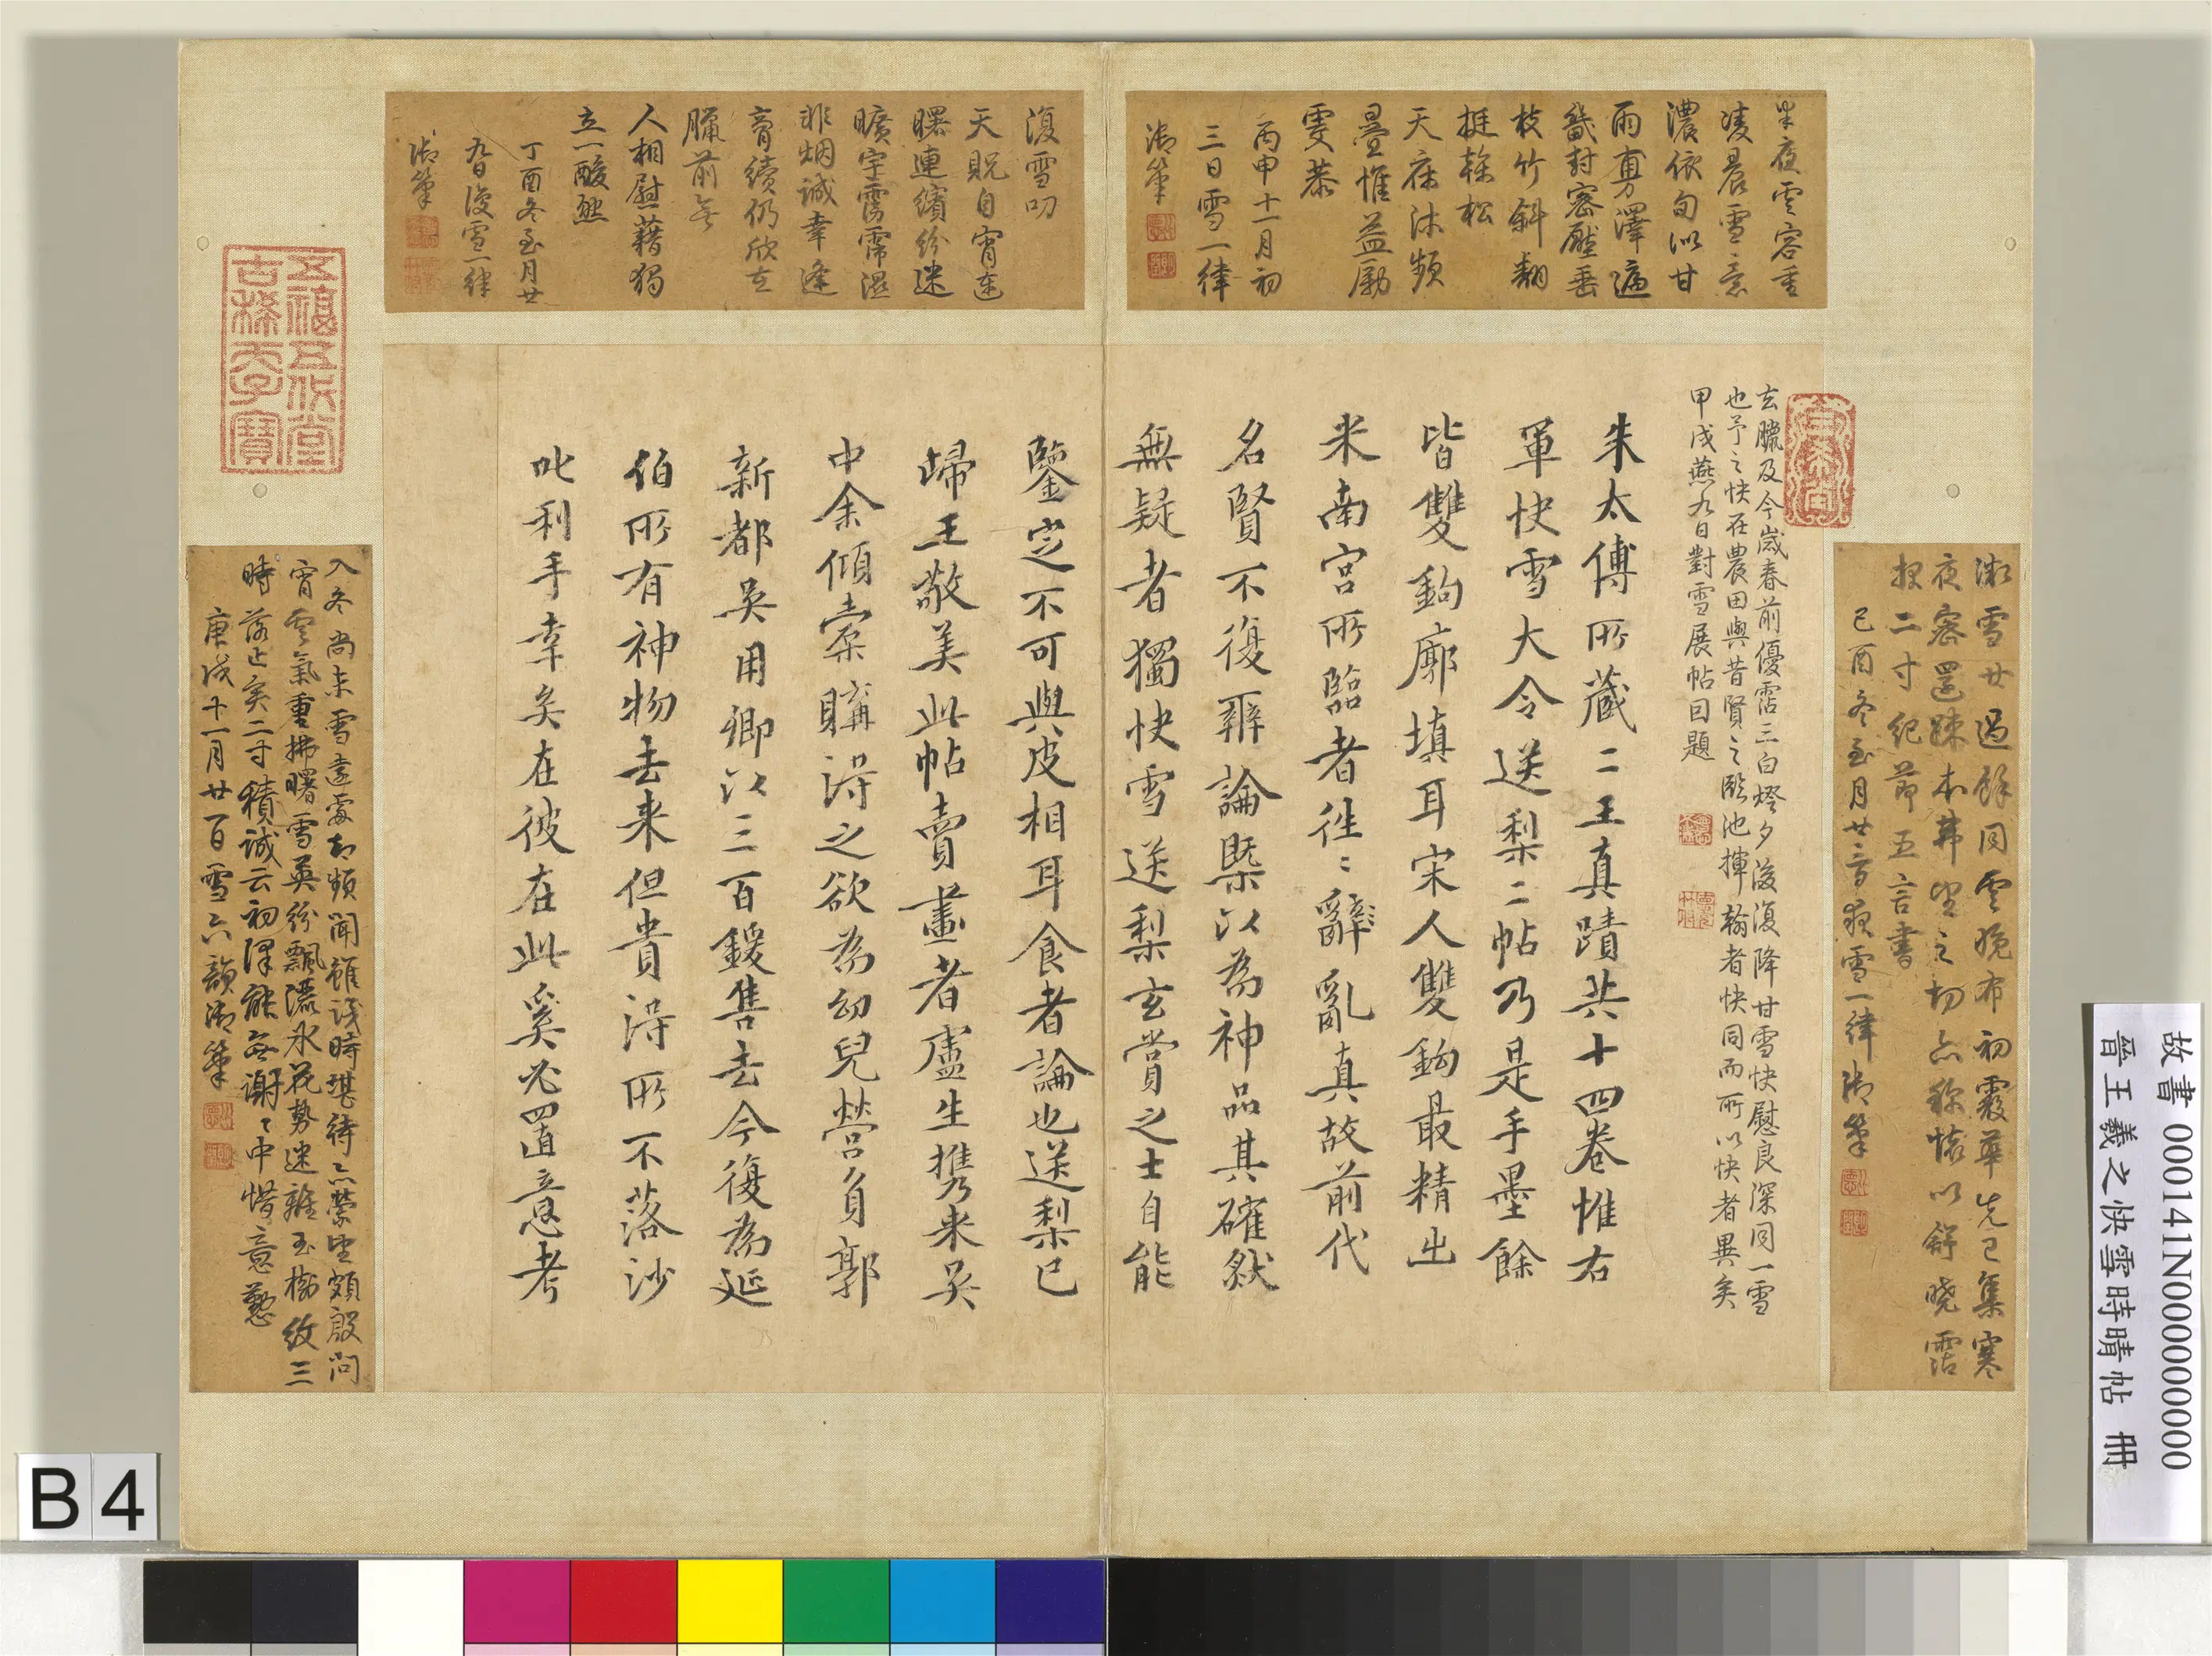 朱太傅所蔵二王真蹟共十四卷惟右
軍快雪大令送梨二帖乃是手墨餘
皆雙鉤廓填耳宋人雙鉤最精出
米南宮所臨者往〻辭亂真故前代
名賢不復辨論槩以為神品其確然
無疑者獨快雪送梨玄賞之士自能
鑒定不可與皮相耳食者論也送梨已
歸王敬美此帖賣畫者盧生携来吳
中余傾橐購得之欲為幼兒營負郭
新都吳用卿以三百鍰售去今復為延
伯所有神物去来但貴得所不落沙
叱利手幸矣在彼在此奚必置意考
玄臘及今歲春前優霑三白燈夕後復降甘雪快慰良深同一雪
也予之快在農田與昔賢之臨池揮翰者快同而所以快者異矣
甲戌燕九日對雪展帖因題
半夜雲容重
凌晨雪意
濃依旬似甘
雨專澤遍
畿封密壓垂
枝竹斜翻
挺榦松
天庥沐頻
疊惟益勵
雯恭
丙申十一月初
三日雪一律
御筆
復雪叨
天貺自宵達
曙連繽紛迷
曠宇霑霈濕
非烟誠幸逢
膏續仍欣在
臘前無
人相慰藉獨
立一酸然
丁酉冬至月廿
九日復雪一律
御筆
微雪廿過餘同雲晚布初霰華先已集寒
夜密還踈本弗望之切亦稱懷以舒曉霑
報二寸紀節五言書
己酉冬至月廿二日夜雪一律御筆
入冬尚未雪遠處却頻聞雖謂時堪待亦縈望頗殷問
宵雲氣重拂曙雪英紛飄瀑氷花勢迷離玉樹紋三
時落止矣二寸積誠云初澤能無謝〻中惜意懃
庚戌十一月廿一日雪六韻御筆
五福五代堂
古稀天子寶
故書 000141N000000000
晉王羲之快雪時晴帖 冊
B4